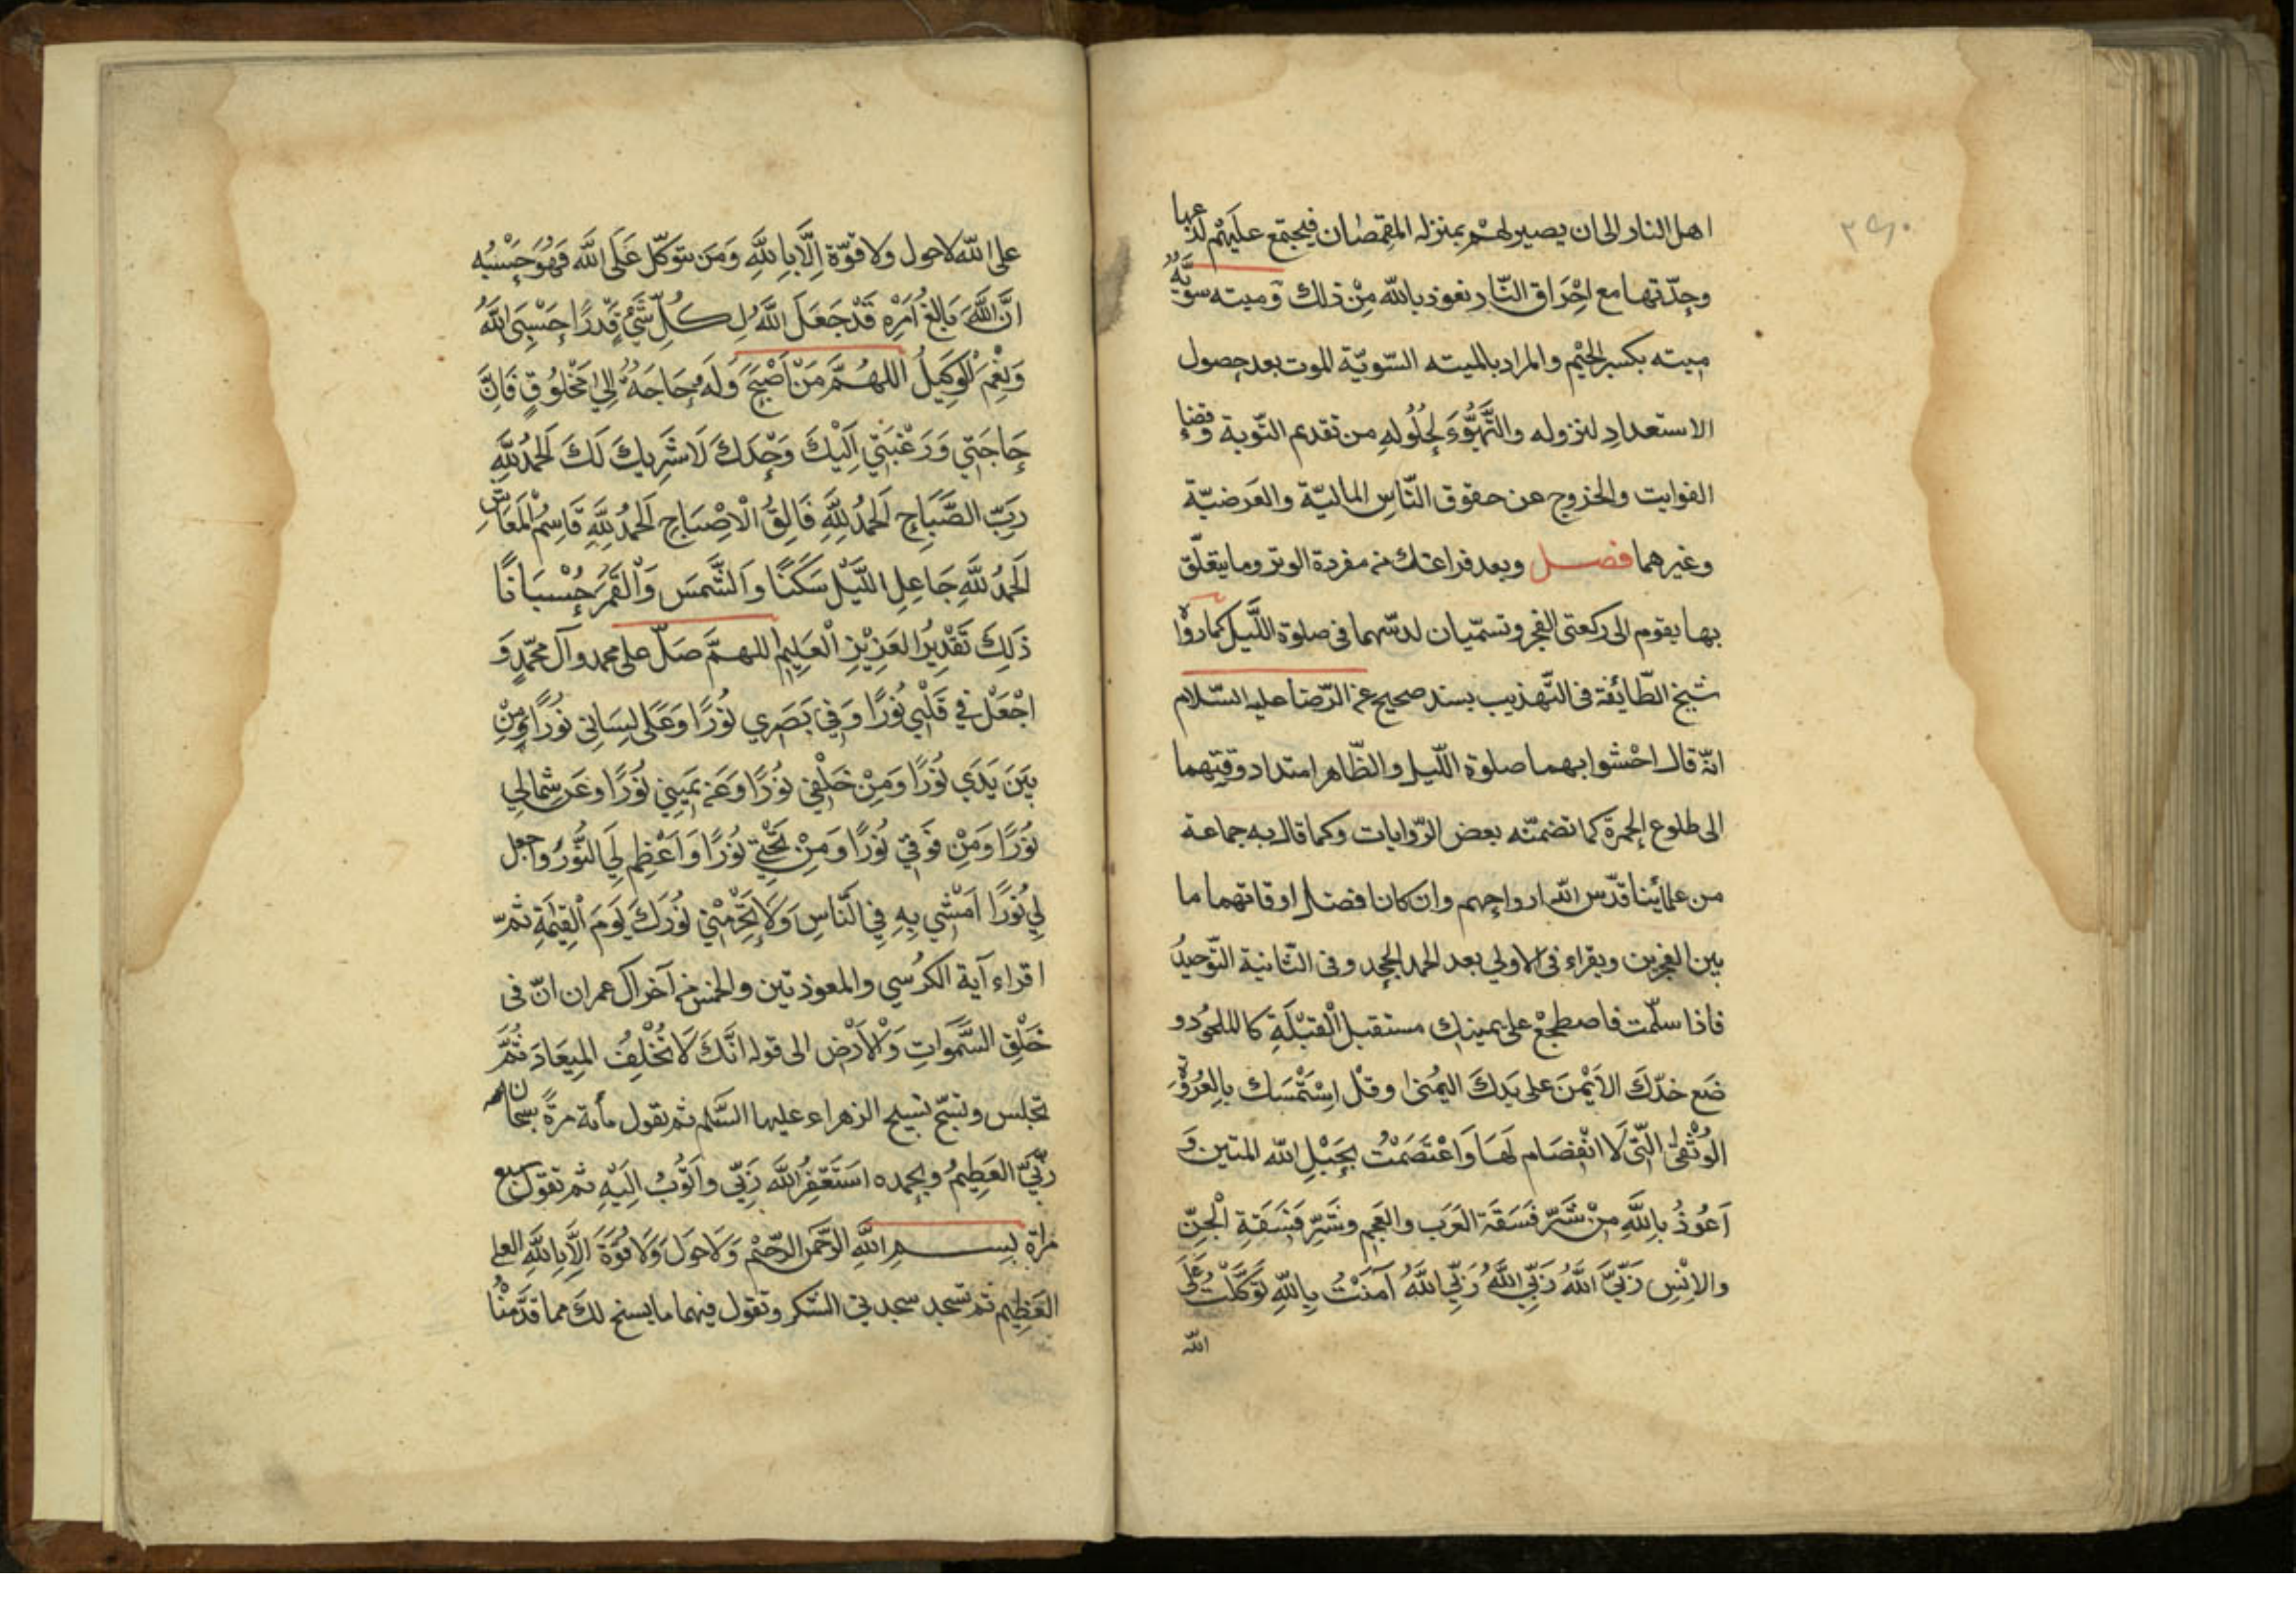 ٣٩٠
اهل النار الى ان يصير لهم بمنزله القمصان فيجتمع عليهم لذعها
وحدّتها مع اِحْرَاق النّار نعوذ بالله مِنْ ذلك وميته سويّةٌ
ميته بكسر الميم والمراد بالميته السّويّة الموت بعد حصول
الاستعدادِ لنزوله والتَّهَيُّوءَ لِحُلُولِهِ من تقديم التّوبة وقضاءِ
الفوايت والخروج عن حقوق النّاسِ الماليّة والعَرضيّة
وغيرهما فصل وبعد فراغك من مفردة الوتر وما يتعلّق
بها يقوم الى ركعتى الفجر وتسمّيان لدسّهما فى صلوة اللّيل كما رواه
شيخ الطّايفة فى التّهذيب بسند صحيح عن الرّضا عليه السّلام
انّه قال احْشوا بهما صلوة اللّيل والظّاهر امتداد وقتيهما
الى طلوع الحمرة كما تضمنّه بعض الرّوايات وكما قال به جماعة
من علمائنا قدّس الله ارواحهم وان كان افضل اوقاتهما ما
بين الفجرين ويقراء فى الاولي بعد الحمد الجحد وفى الثّانية التّوحيدُ
فاذا سلّمت فاضطجعْ على يمينك مستقبل الْقِبْلَةِ كالملحُود و
ضَع خدّكَ الاَيْمنَ على يَدكَ اليُمنىٰ وقلْ اِسْتَمْسَك بِالعُرْوَةِ
الوُثْقىٰ الَّتى لَا انْفِصَام لَهَا وَاعْتَصَمْتُ بِحَبْلِ الله المتين وَ
اَعُوذُ بِاللَّهِ مِنْ شَرِّ فَسَقَةِ العَرَب والعَجَم وشَرِّ فَسَقَةِ الْجِنّ
والاِنْسِ رَبِّيَ اللَّهُ رَبِّيَ اللَّهُ رَبِّيَ اللَّهُ آمَنْتُ بِاللَّهِ تَوَكَّلْتُ عَلَى
الله
على الله لا حول ولا قوّة اِلَّا بِاللَّهِ وَمَن يتوكّل عَلَى اللَّه فَهُوَ حَسْبُه
انَّ اللَّهَ بَالِغُ اَمْرِه قَدْ جَعَلَ اللَّهُ لِكُلِّ شَيْءٍ قَدْرًا حَسْبِيَ اللَّهُ
وَنِعْمَ الْوَكِيلُ اَللَّهُمَّ مَنْ اَصْبَحَ وَلَهُ حَاجَةٌ اِلىٰ مَخْلُوقٍ فَاِنَّ
حَاجَتِي وَرَغْبَتِي اِلَيْكَ وَحْدَكَ لَا شَرِيكَ لَكَ اَلحَمْدُ لِلَّهِ
رَبِّ الصَّبَاحِ اَلحَمْدُ لِلَّهِ فَالِقُ الْاِصْبَاحِ اَلحَمْدُ لِلَّهِ قَاسِمُ الْمَعَاشِ
اَلحَمْدُ لِلَّهِ جَاعِلِ اللَّيْلَ سَكَنًا وَالشَّمسَ وَالْقَمَرَ حُسْبَانًا
ذَلِكَ تَقْدِيرُ العَزِيْزِ الْعَلِيمِ اللهمَّ صَلّ على محمد وآل محمّدٍ وَ
اجْعَلْ فِي قَلْبِي نُورًا وَفِي بَصَرِي نُورًا وَعَلى لِسَانِي نُورًا وَمِنْ
بَيَن يَدَي نُورًا وَمِنْ خَلْفِي نُورًا وَعَن يَمِينِي نُورًا وعَن شِمالي
نُورًا وَمِنْ فَوقِي نُورًا وَمِنْ تَحْتِي نُورًا وَاَعْظِم لِيَ النُّورَ واجعل
لِي نُورًا اَمْشِي بِهِ فِي النَّاسِ وَلَا تَحْرِمْنِي نُورَكَ يَومَ الْقِيٰمَةِ ثمّ
اقراء آية الكرسي والمعوذتين والخمس من آخر آل عمران انّ فى
خَلْقِ السَّمٰوَاتِ وَالْاَرْضِ الى قوله اِنَّكَ لَا تُخْلِفُ المِيعَادَ ثُمَّ
تجلس وتسبّح تسبيح الزهراء عليها السَّلم ثم تقول مأئة مرّةً سبحان
ربّيَ العَظِيمُ وبحمده اَسْتَغْفِرُ اللَّهَ رَبّي واَتُوبُ اِلَيْهِ ثم تقول سبع
مراة بسم اللَّهِ الرَّحمن الرّحيْم وَلَا حَولَ وَلَا قُوَّةَ اِلَّا بِاللَّهِ العلى
العَظِيم ثم تسجد سجدتي الشكر وتقول فيهما ما يسنح لكَ مما قدَّمنْا